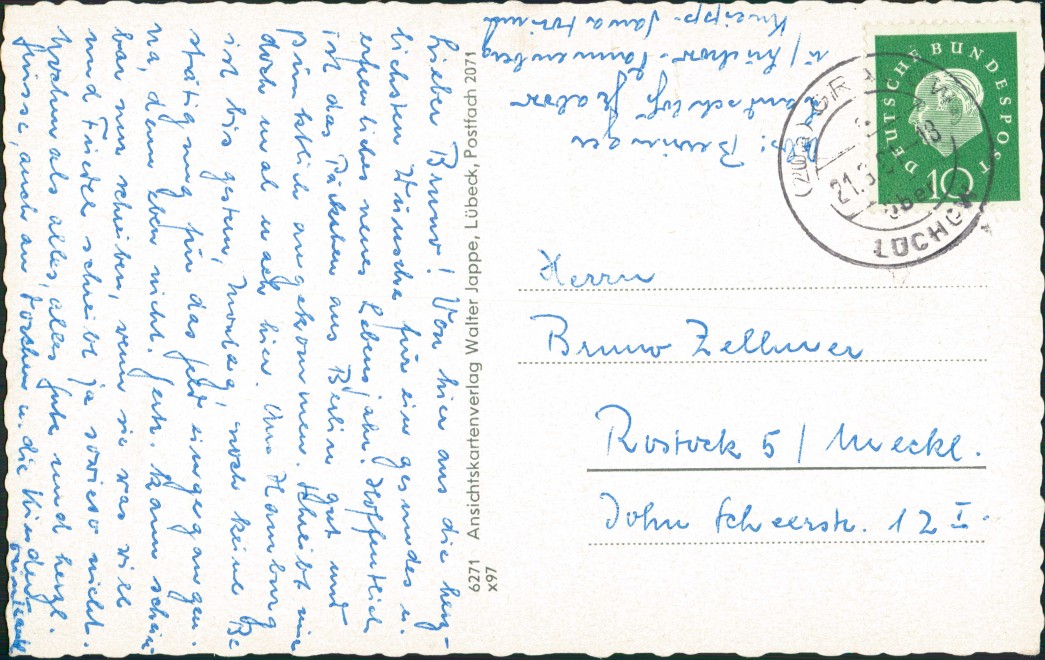 Lieber Bruno! Von hier aus die herz-
lichsten Wünsche für ein gesundes u.
erfreuliches neues Lebensjahr. Hoffentlich
ist das Päckchen aus Berlin gut und
pünktlich angekommen. Schreibt mir
doch mal nach hier. Aus Hamburg
ist bis gestern, Montag, noch keine Be
stätigung für das Geld eingegangen.
Na, denn eben nicht. Gertr. kann schein
bar nur schreiben, wenn sie was will
und Friedel schreibt ja sowieso nicht.
Nochmals alles, alles Gute und herzl.
Grüsse, auch an Tochter u. die Kinder
6271 Ansichtskartenverlag Walter Jappe, Lübeck, Postfach 2071
x97
Kneipp-Sanatorium
ü/Lüchow-Dannenberg
DEUTSCHE BUNDESPOST
10
über
LÜCHOW
Herrn
Bruno Zellmer
Rostock 5 / Meckl.
John Scheerstr. 12 I.